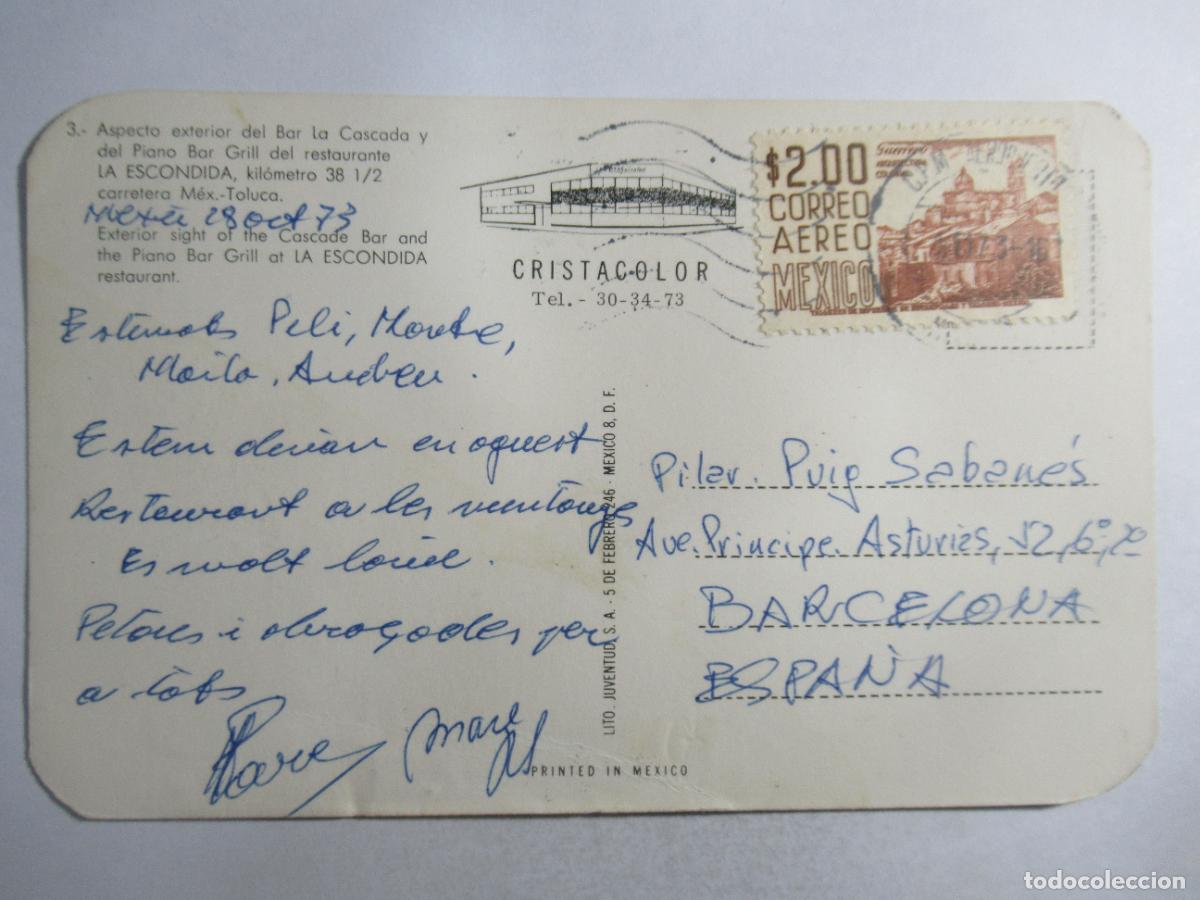 3.- Aspecto exterior del Bar La Cascada y
del Piano Bar Grill del restaurante
LA ESCONDIDA, kilómetro 38 1/2
carretera Méx.-Toluca.
28 oct 73
Exterior sight of the Cascade Bar and
the Piano Bar Grill at LA ESCONDIDA
restaurant.
Estimats Peli, Montse,
Maita, Andreu.
Estem dinan en aquest
Restaurant a les muntanyes
Es molt bonic.
Petons i abraçades per
a tots
Pare mare
CRISTACOLOR
Tel. - 30-34-73
$2.00
CORREO
AEREO
MEXICO
Guerrero
ARQUITECTURA
COLONIAL
LITO. JUVENTUD, S. A. - 5 DE FEBRERO 246 - MEXICO 8, D. F.
Pilar Puig Sabanés
Ave. Principe Asturias, 52, 6º, 2º
BARCELONA
ESPAÑA
PRINTED IN MEXICO
todocoleccion